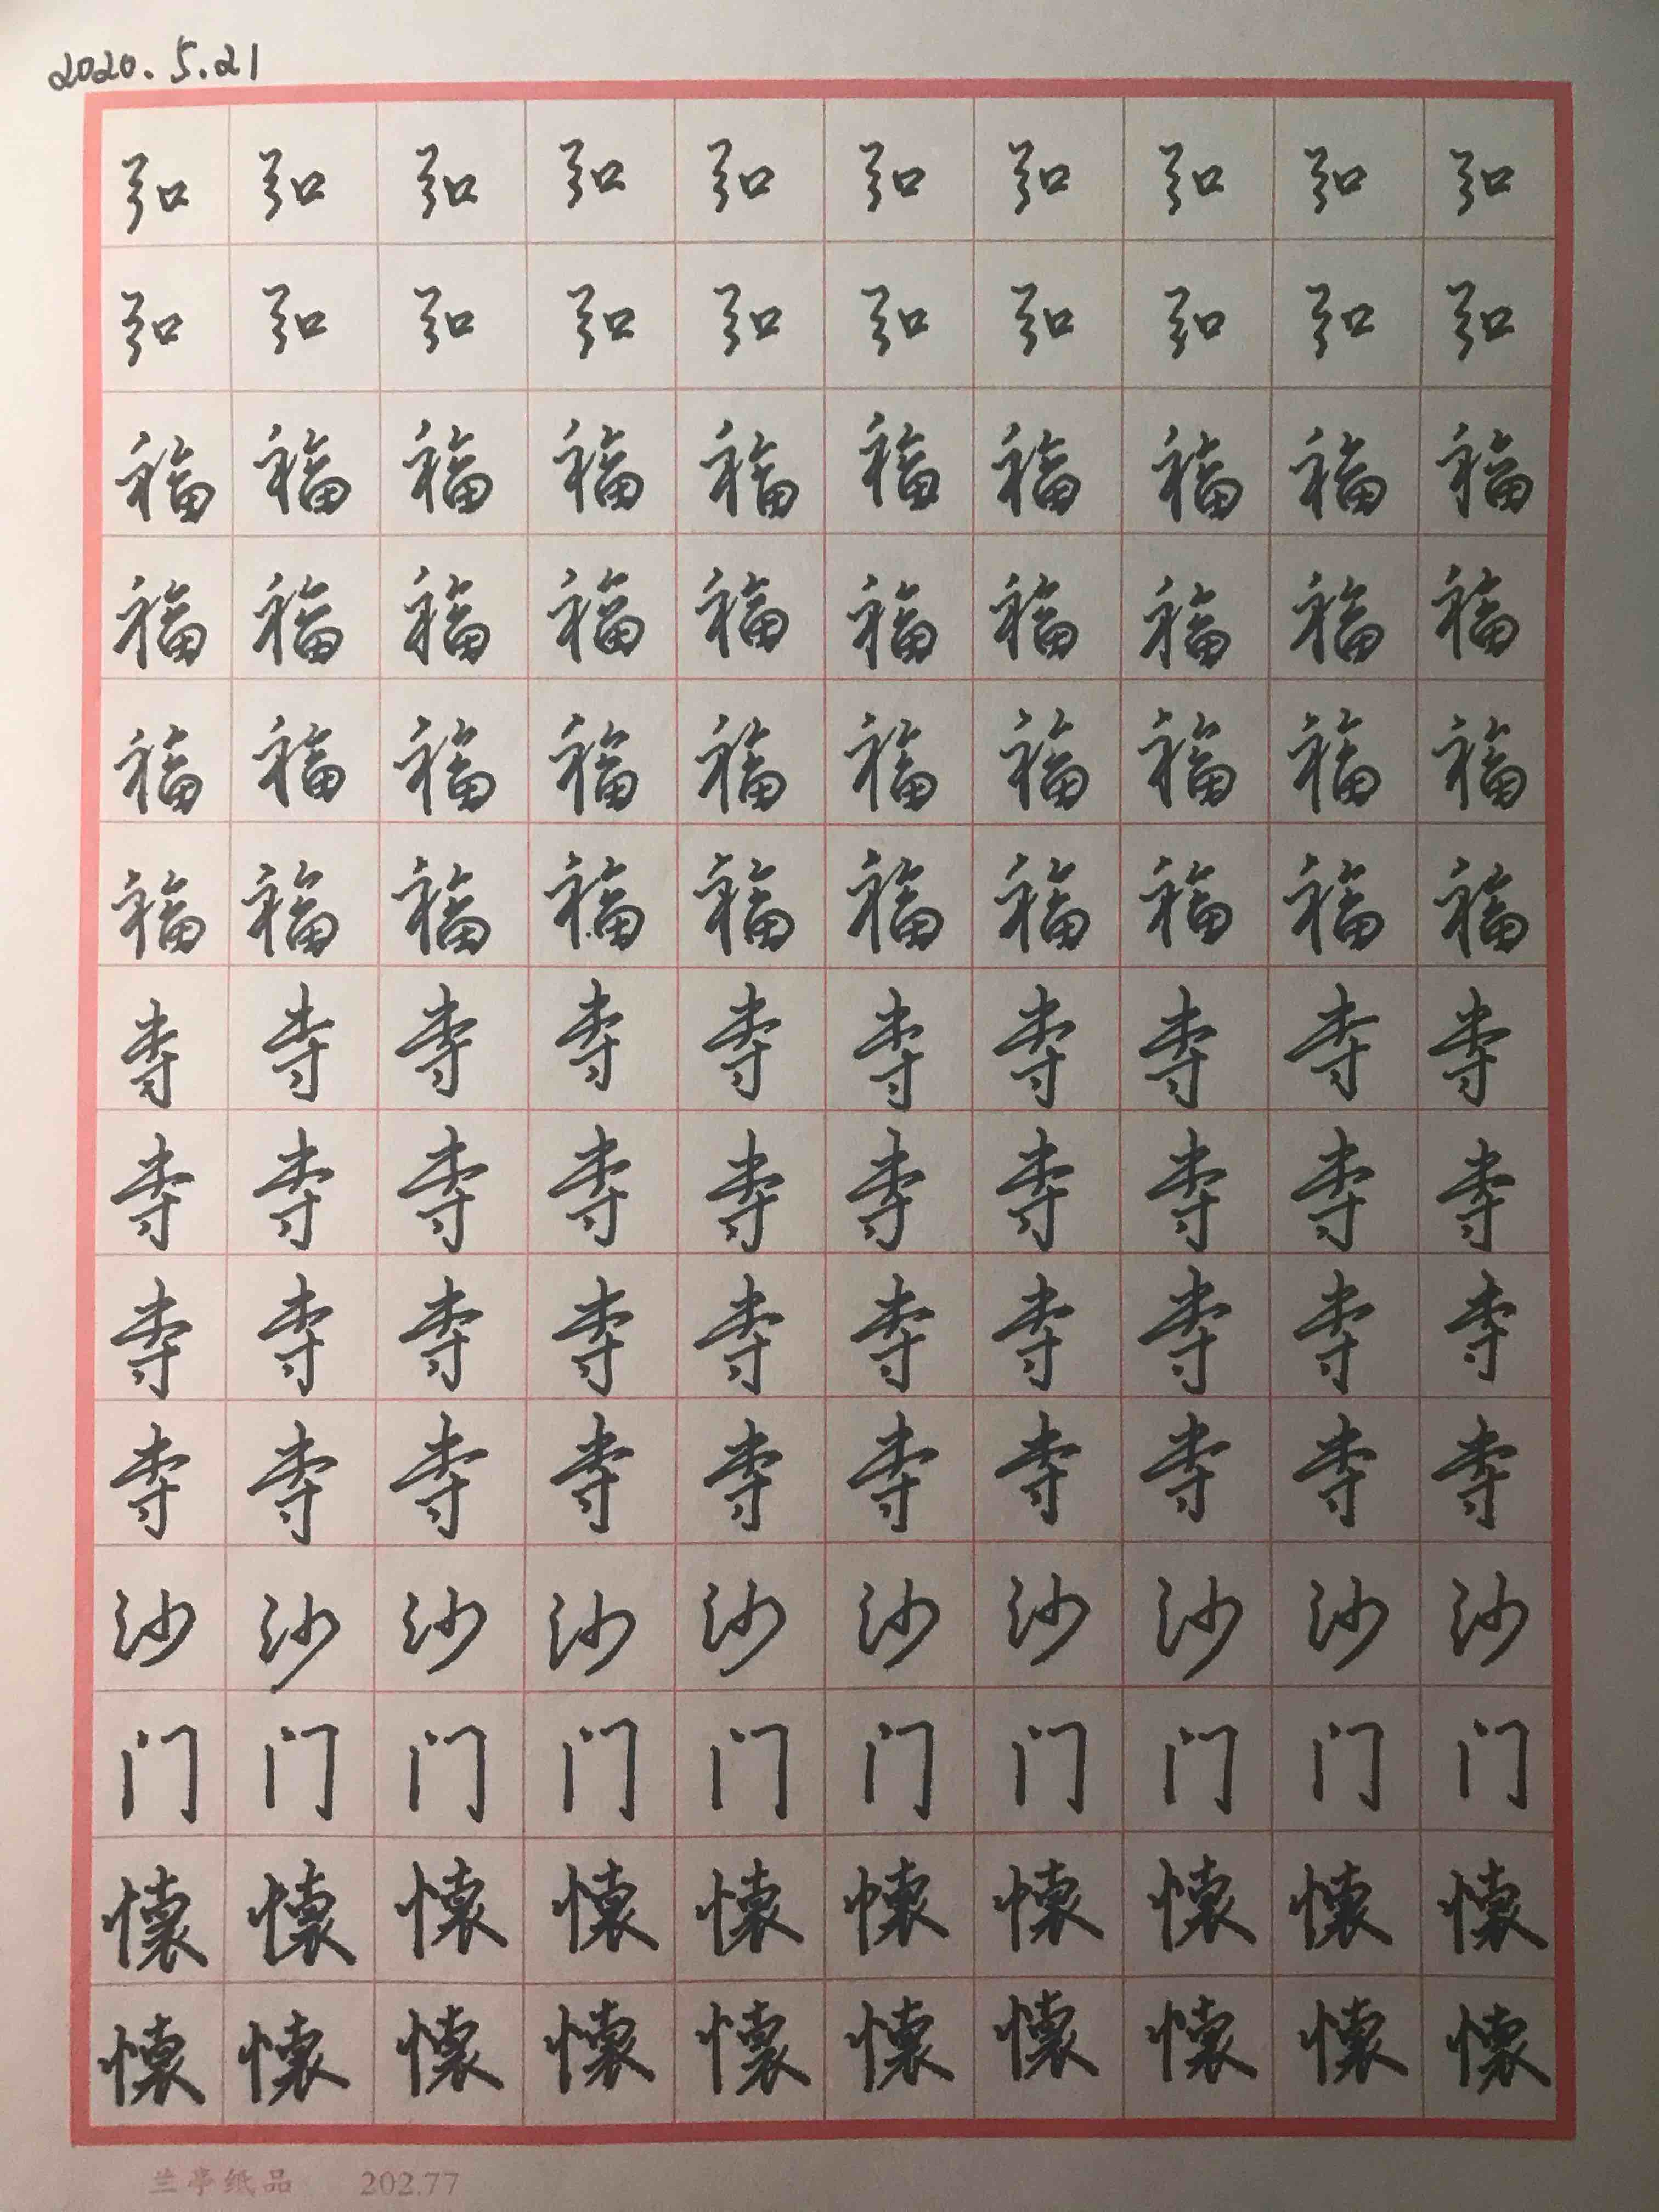 2020.5.21
弘弘弘弘弘弘弘弘弘弘
弘弘弘弘弘弘弘弘弘弘
福福福福福福福福福福
福福福福福福福福福福
福福福福福福福福福福
福福福福福福福福福福
寺寺寺寺寺寺寺寺寺寺
寺寺寺寺寺寺寺寺寺寺
寺寺寺寺寺寺寺寺寺寺
寺寺寺寺寺寺寺寺寺寺
沙沙沙沙沙沙沙沙沙沙
门门门门门门门门门门
懷懷懷懷懷懷懷懷懷懷
懷懷懷懷懷懷懷懷懷懷
兰亭纸品 202.77